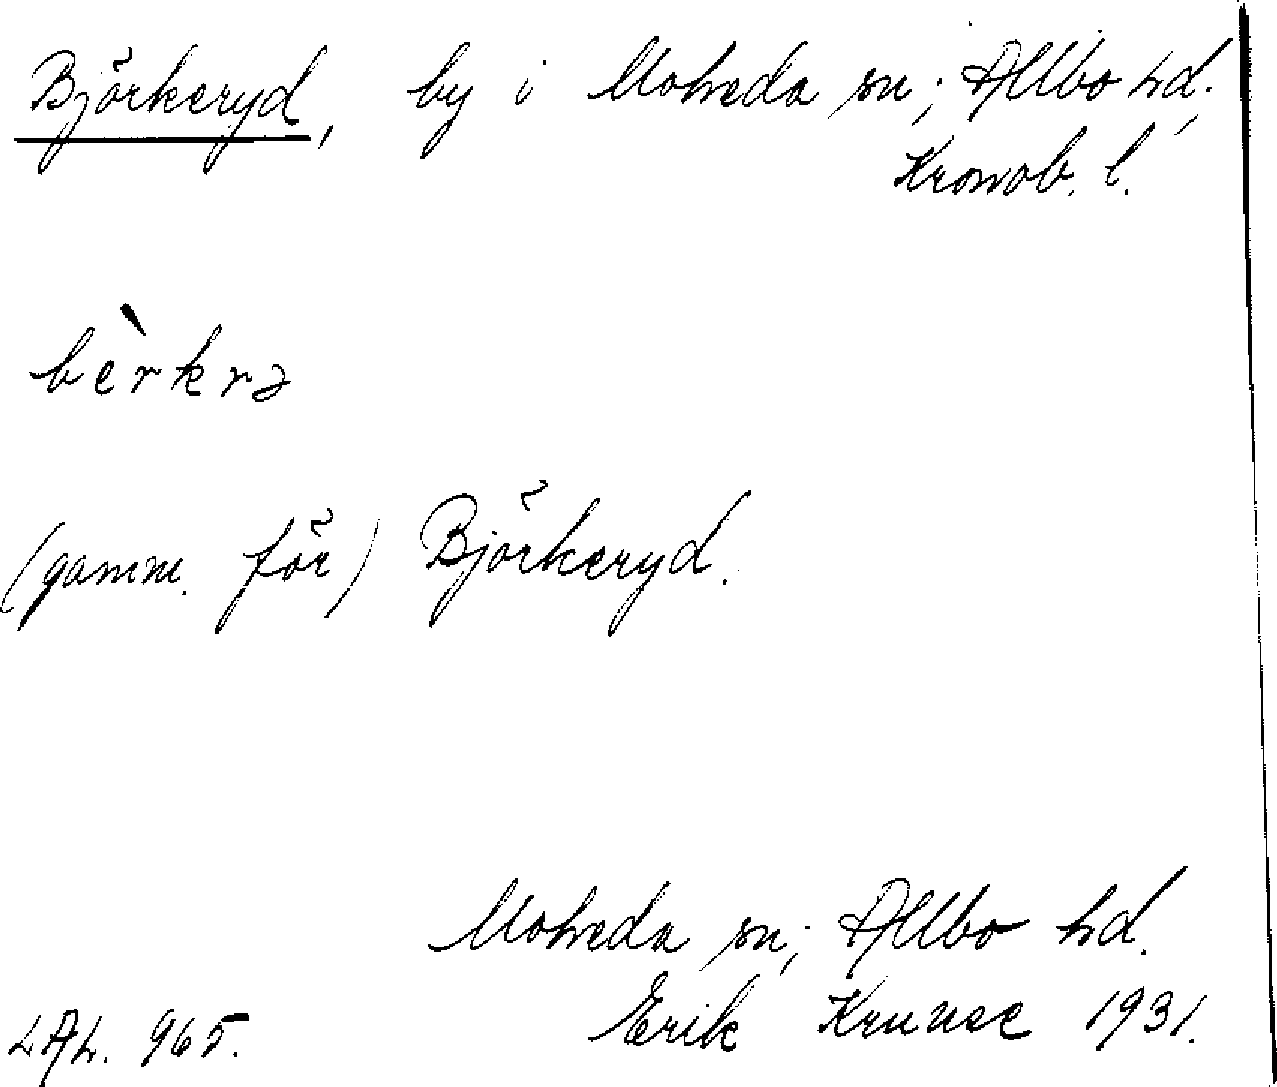 Björkeryd, by i Moheda sn; Allbo hd.,
Kronob. l.
bèrkrə
(gamm. för) Björkeryd.
Moheda sn; Allbo hd.
LAL. 965. Erik Kruuse 1931.